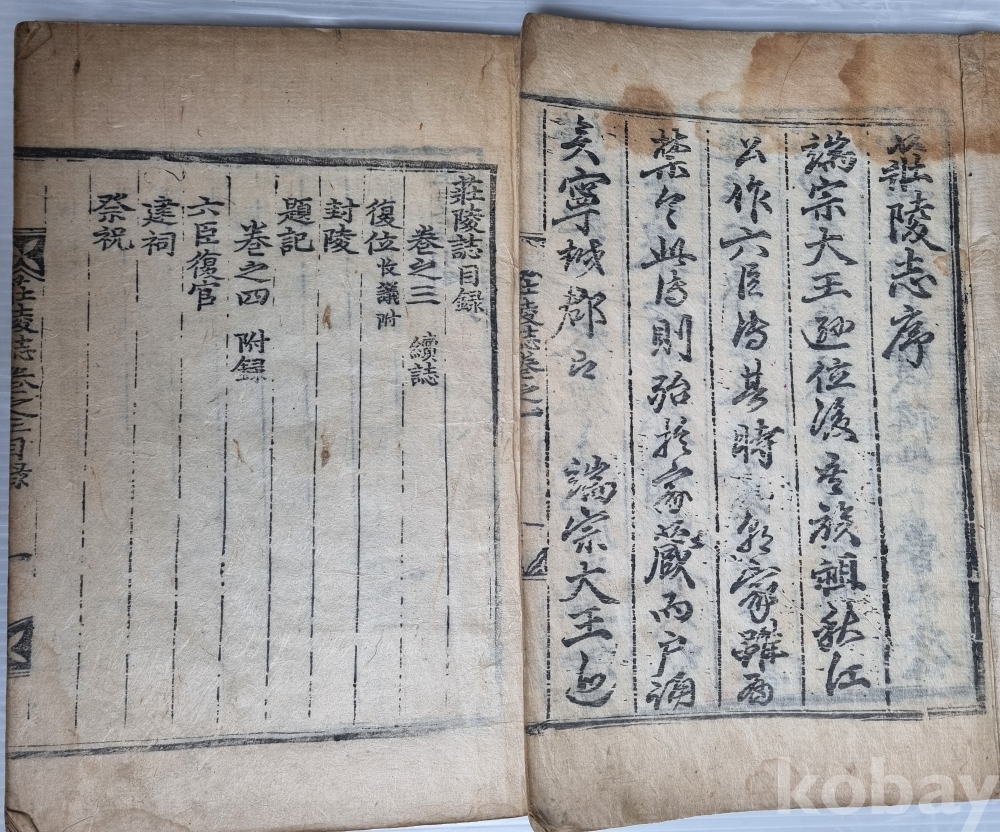 莊陵志序
端宗大王遜位後吾族祖秋江
公作六臣傳其時朝家雖有
禁令此傳則殆於家藏而戶誦
矣寧城郡 端宗大王
莊陵誌卷之一
莊陵誌目錄
卷之三 續誌
復位 收議附
封陵
題記
卷之四 附錄
六臣復官
建祠
祭祝
莊陵誌卷之三目錄 一
kobay